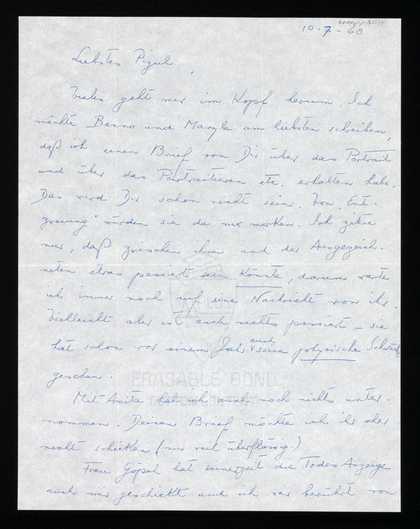 10-7-60
Liebstes Pizul,
Vieles geht mir im Kopf herum. Ich
möchte Benno und Maryla am liebsten schreiben,
daß ich einen Brief von Dir über das Portrait
und über das Portraitieren etc. erhalten habe.
Das wird Dir schon recht sein. Von "Ent-
" würden sie da nur merken. Ich
nur, daß zwischen ihm und der Ausgezeich-
neten etwas passiert sein könnte, darum warte
ich immer noch auf eine Nachricht von ihr.
Vielleicht aber ist auch nichts passiert – sie
hat schon vor einem Jahr auch seine polypische
gesehen.
Mit Anita hab ich auch noch nichts unter-
nommen. Deinen Brief möchte ich ihr aber
nicht schicken (nur weil überflüssig)
Frau Göpel hat seinerzeit die Todes-Anzeige
auch mir geschickt und ich war berührt von
ERASABLE BOND